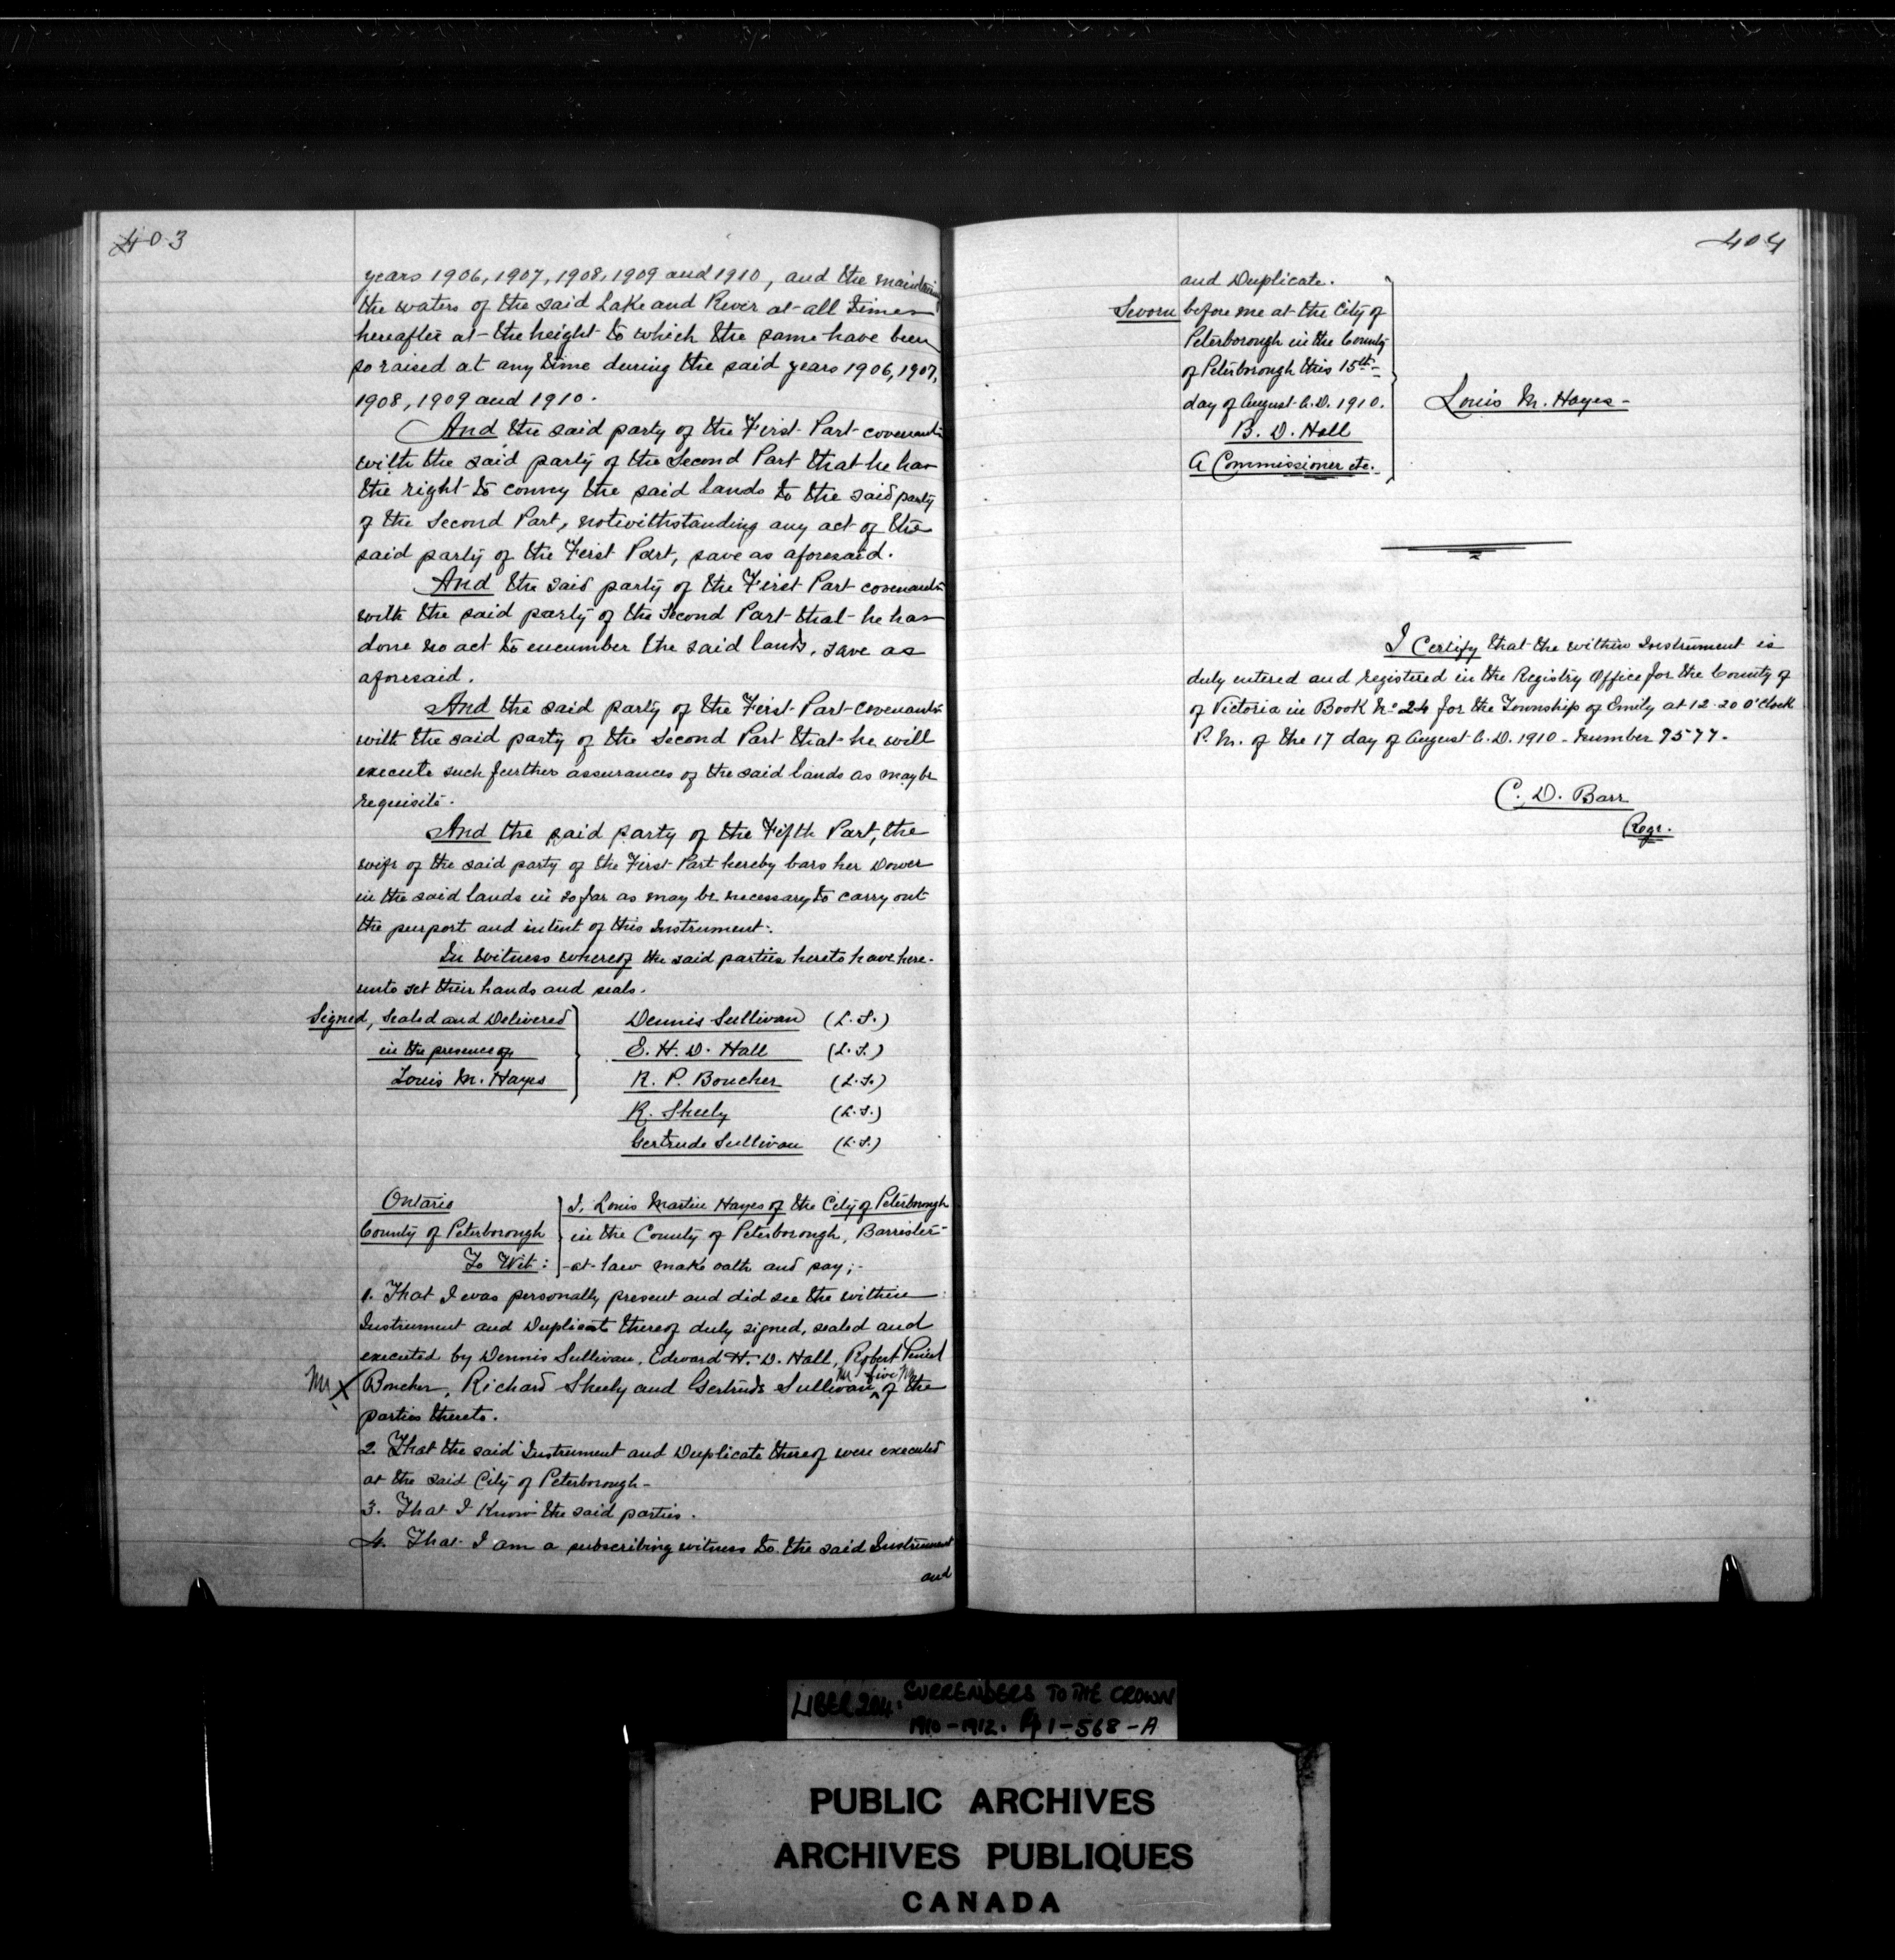 403
years 1906, 1907, 1908, 1909 and 1910, and the maintaining
the waters of the said Lake and River at all times
hereafter at the height to which the same have been
so raised at any time during the said years 1906, 1907,
1908, 1909 and 1910.
And the said party of the First Part covenants
with the said party of the Second Part that he has
the right to convey the said lands to the said party
of the Second Part, notwithstanding any act of the
said party of the First Part, save as aforesaid.
And the said party of the First Part covenants
with the said party of the Second Part that he has
done no act to encumber the said lands, save as
aforesaid.
And the said party of the First Part covenants
with the said party of the Second Part that he will
execute such further assurances of the said lands as may be
requisite.
And the said party of the Fifth Part, the
wife of the said party of the First Part hereby bars her Dower
in the said lands in so far as may be necessary to carry out
the purport and intent of this Instrument.
In Witness whereof the said parties hereto have here-
unto set their hands and seals.
Signed, Sealed and Delivered
in the presence of
Louis M. Hayes
Dennis Sullivan (L.S.)
E. H. D. Hall (L.S.)
R. P. Boucher (L.S.)
R. Sheely (L.S.)
Gertrude Sullivan (L.S.)
Ontario
County of Peterborough
To Wit:
I, Louis Martin Hayes of the City of Peterborough
in the County of Peterborough, Barrister-
-at-law make oath and say;-
1. That I was personally present and did see the within
Instrument and Duplicate thereof duly signed, sealed and
executed by Dennis Sullivan, Edward H. D. Hall, Robert
X Boucher, Richard Sheely and Gertrude Sullivan five of the
parties thereto.
2. That the said Instrument and Duplicate thereof were executed
at the said City of Peterborough-
3. That I know the said parties.
4. That I am a subscribing witness to the said Instrument
and
404
and Duplicate.
Sworn before me at the City of
Peterborough in the County
of Peterborough this 15th
day of August A.D. 1910.
B. D. Hall
A Commissioner etc.
Louis M. Hayes-
I Certify that the within Instrument is
duly entered and registered in the Registry Office for the County of
of Victoria in Book No 24 for the Township of Emily at 12.20 O'clock
P.M. of the 17 day of August A.D. 1910 - Number 7577.
C. D. Barr
Regr.
LIBER 204: SURRENDERS TO THE CROWN
1910-1912. Pp 1-568-A
PUBLIC ARCHIVES
ARCHIVES PUBLIQUES
CANADA